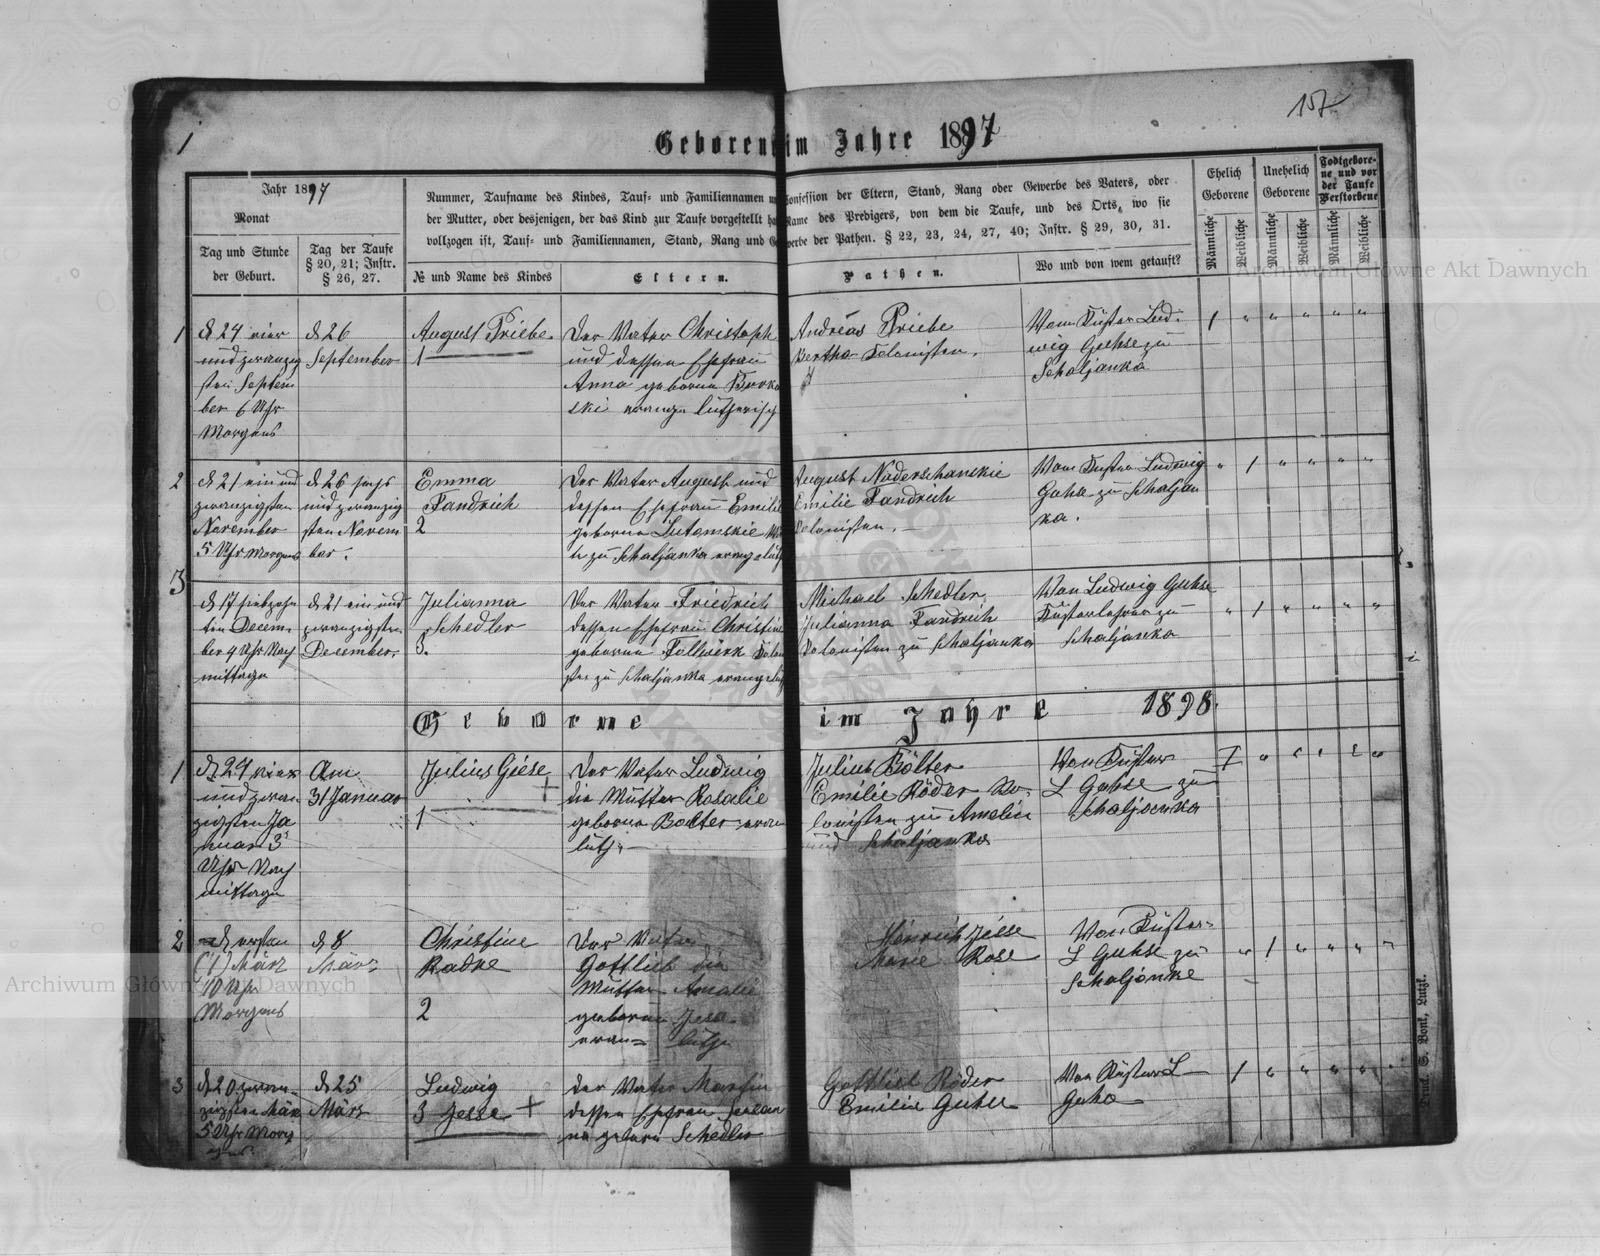 157.
1
Geboren im Jahre 1897
Jahr 1897
Monat
Tag und Stunde
der Geburt.
Tag der Taufe
§ 20, 21; Instr.
§ 26, 27.
Nummer, Taufname des Kindes, Tauf- und Familiennamen
Confession der Eltern, Stand, Rang oder Gewerbe des Vaters, oder
der Mutter, oder desjenigen, der das Kind zur Taufe vorgestellt
Name des Predigers, von dem die Taufe, und des Orts, wo sie
vollzogen ist, Tauf- und Familiennamen, Stand, Rang und Gewerbe der Pathen. § 22, 23, 24, 27, 40; Instr. § 29, 30, 31.
№ und Name des Kindes
Eltern.
Pathen.
Wo und von wem getauft?
Ehelich
Geborene
Unehelich
Geborene
Todtgebore-
ne und vor
der Taufe
Verstorbene
Männliche
Weibliche
Männliche
Weibliche
Männliche
Weibliche
1
d 24 vier
und zwanzig
sten Septem
ber 6 Uhr
Morgens
d 26
September
August Priebe.
1
Der Vater Christoph
und dessen Ehefrau
Anna geborne
ski evange lutherisch
Andreas Priebe
Bertha Kolonisten.
Vom Küster Lud-
wig Guhse zu
Schaljanka
1 " " " " "
2
d 21 ein und
zwanzigsten
November
5 Uhr Morgens
d 26 sechs
und zwanzig
sten Novem
ber.
Emma
Fandrich
2
Der Vater August und
dessen Ehefrau Emilie
geborne Lutomskie
zu Schaljanka evang luth
August Naderschanskie
Emilie Fandrich
Kolonisten.
Vom Küster Ludwig
Guhse zu Schaljan
ka.
" 1 " " " "
3
d 17 siebzehn
ten Decem-
ber 4 Uhr Nach
mittags
d 21 ein und
zwanzigsten
December.
Julianna
Schedler
3.
Der Vater Friedrich
dessen Ehefrau Christine
geborne Follwerk
zu Schaljanka evang
Michael Schedler
Julianna Fandrich
Kolonisten zu Schaljanka
Von Ludwig Guhse
Küsterlehrer zu
Schaljanka
" 1 " " " "
Geborne im Jahre 1898.
1
d 24 vier
und zwan
zigsten Ja
nuar 3
Uhr Nach
mittags
Am
31 Januar
Julius Giese
1
Der Vater Ludwig
die Mutter Rosalie
geborne Bolter evan
luth.
Julius Bölter
Emilie Röder Ko-
lonisten zu Amelin
und Schaljanka
Von Küster
L Guhse zu
Schaljanka
1 " " " " "
2
d ersten
(1) März
10 Uhr
Morgens
d 8
März
Christine
Radke
2
Der Vater
Gottlieb die
Mutter Amalie
geborne Jesse
evan= luth
Heinrich Jesse
Marie Rose
Von Küster
L Guhse zu
Schaljanke
" 1 " " " "
3
d 20 zwan
zigsten März
5 Uhr Morg
ens
d 25
März
Ludwig
3 Jesse
der Vater Martin
dessen Ehefrau Julian
na geborn Schedler
Gottlieb Röder
Emilie Guhse
Von Küster L
Guhse
1 " " " " "
Druck S. Bonk, Luzk.
Archiwum Główne Akt Dawnych
Archiwum Główne Akt Dawnych